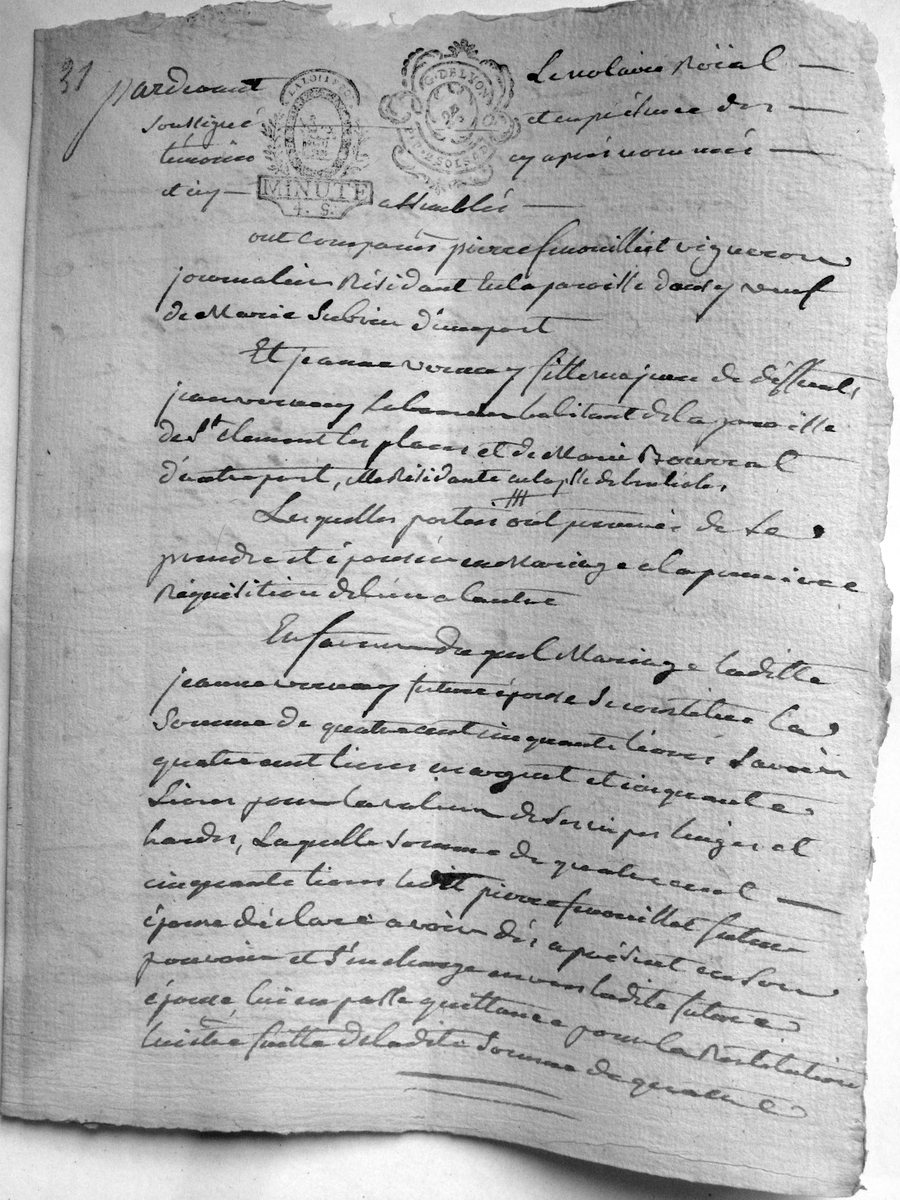 31
pardevant Le notaire Roïal
soussigné et en présence des
témoins cy après nommés
et icy assemblés
LA LOI ET LE
MINUTE
4. S.
G. DE LYON
ont comparus pierre fenouillet vigneron
journalier Résidant en la paroisse veuf
de Marie Subrin d'une part
Et jeanne vernay fille majeure de deffunts
jean vernay habitant de la paroisse
de St. clement les places et de Marie
d'autre part, elle Résidante en la psse de
Lesquelles parties ont promis de se
prendre et épouser en Mariage a la premiere
Réquisition de l'un a l'autre
En faveur duquel Mariage laditte
jeanne vernay future épouse se constitue la
somme de quatre cent cinquante livres savoir
quatre cent livres en argent et cinquante
Livres pour la valeur de ses nipes linges et
hardes, Laquelle somme de quatre cent
cinquante livres ledit pierre fenouillet futur
époux déclare avoir dès a présent en son
pouvoir et s'en charge envers ladite future
épouse lui en passe quittance pour la Restitution
lui être faitte de ladite somme de quatre